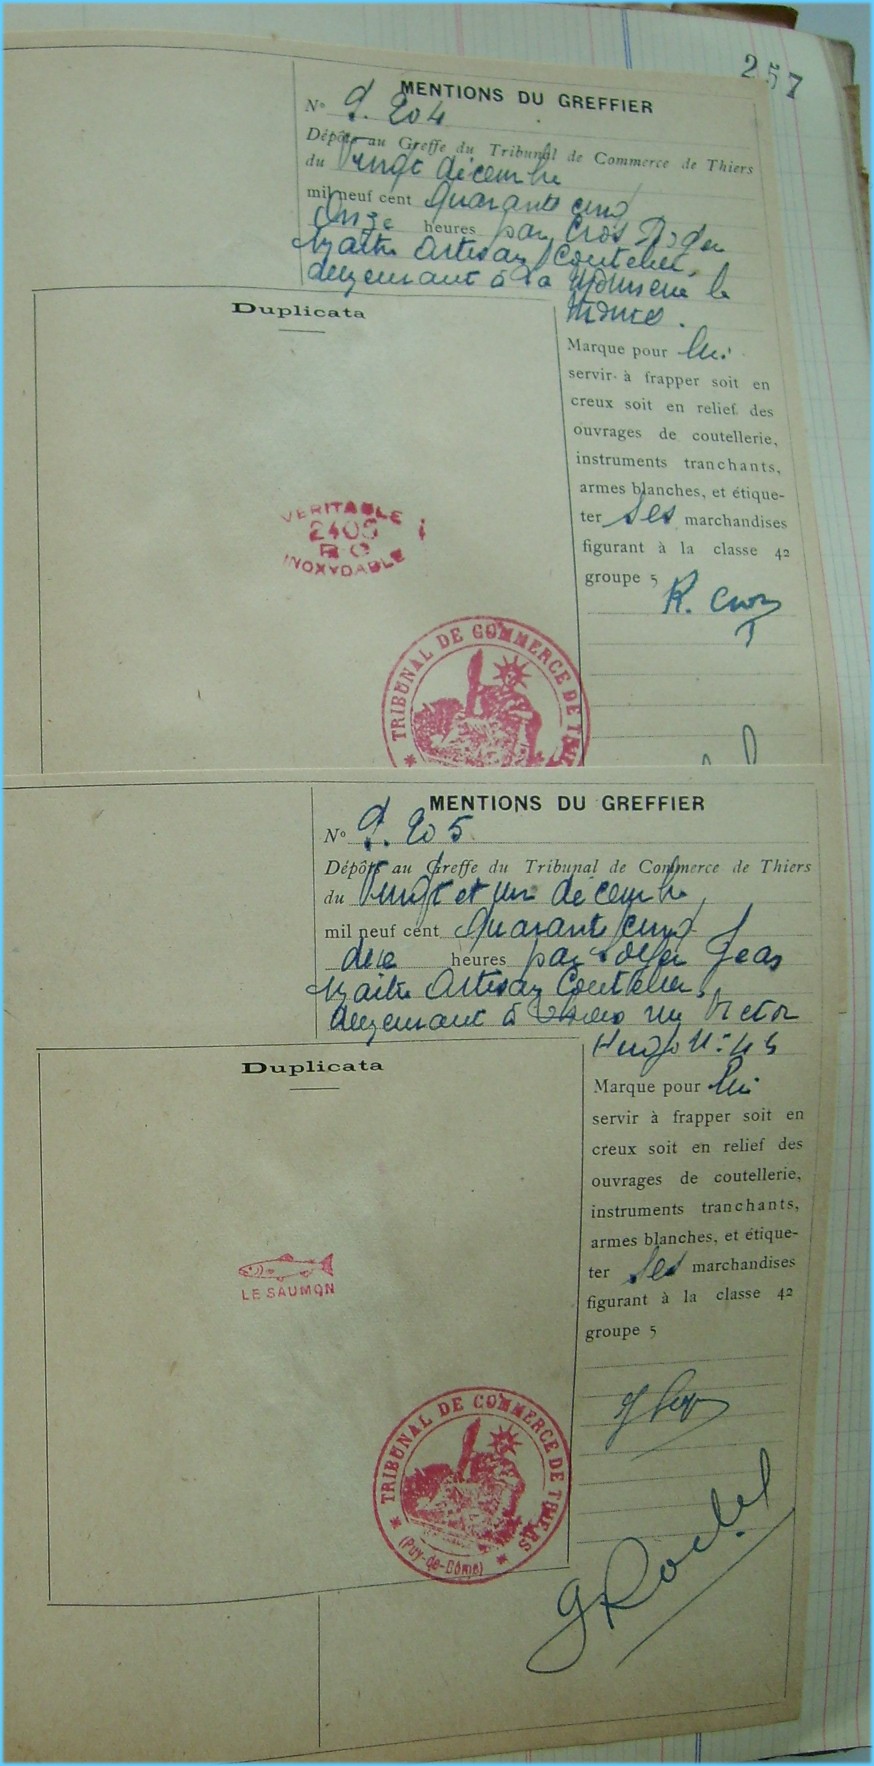 257
MENTIONS DU GREFFIER
N° 9.204
Dépôt au Greffe du Tribunal de Commerce de Thiers
du Vingt décembre
mil neuf cent Quarante cinq
Onze heures par Cros Roger
Maître Artisan Coutelier,
demeurant à La Monnerie le
Duplicata
Marque pour lui
servir à frapper soit en
creux soit en relief des
ouvrages de coutellerie,
instruments tranchants,
armes blanches, et étique-
ter ses marchandises
figurant à la classe 42
groupe 5
R. Cros
VERITABLE
2409
R C
INOXYDABLE
TRIBUNAL DE COMMERCE DE THIERS
MENTIONS DU GREFFIER
N° 9.205
Dépôt au Greffe du Tribunal de Commerce de Thiers
du Vingt et un décembre
mil neuf cent Quarante cinq
heures par Jean
Maître Artisan Coutelier,
demeurant à Thiers rue Victor
Hugo N° 45
Duplicata
Marque pour lui
servir à frapper soit en
creux soit en relief des
ouvrages de coutellerie,
instruments tranchants,
armes blanches, et étique-
ter ses marchandises
figurant à la classe 42
groupe 5
LE SAUMON
TRIBUNAL DE COMMERCE DE THIERS
(Puy-de-Dôme)